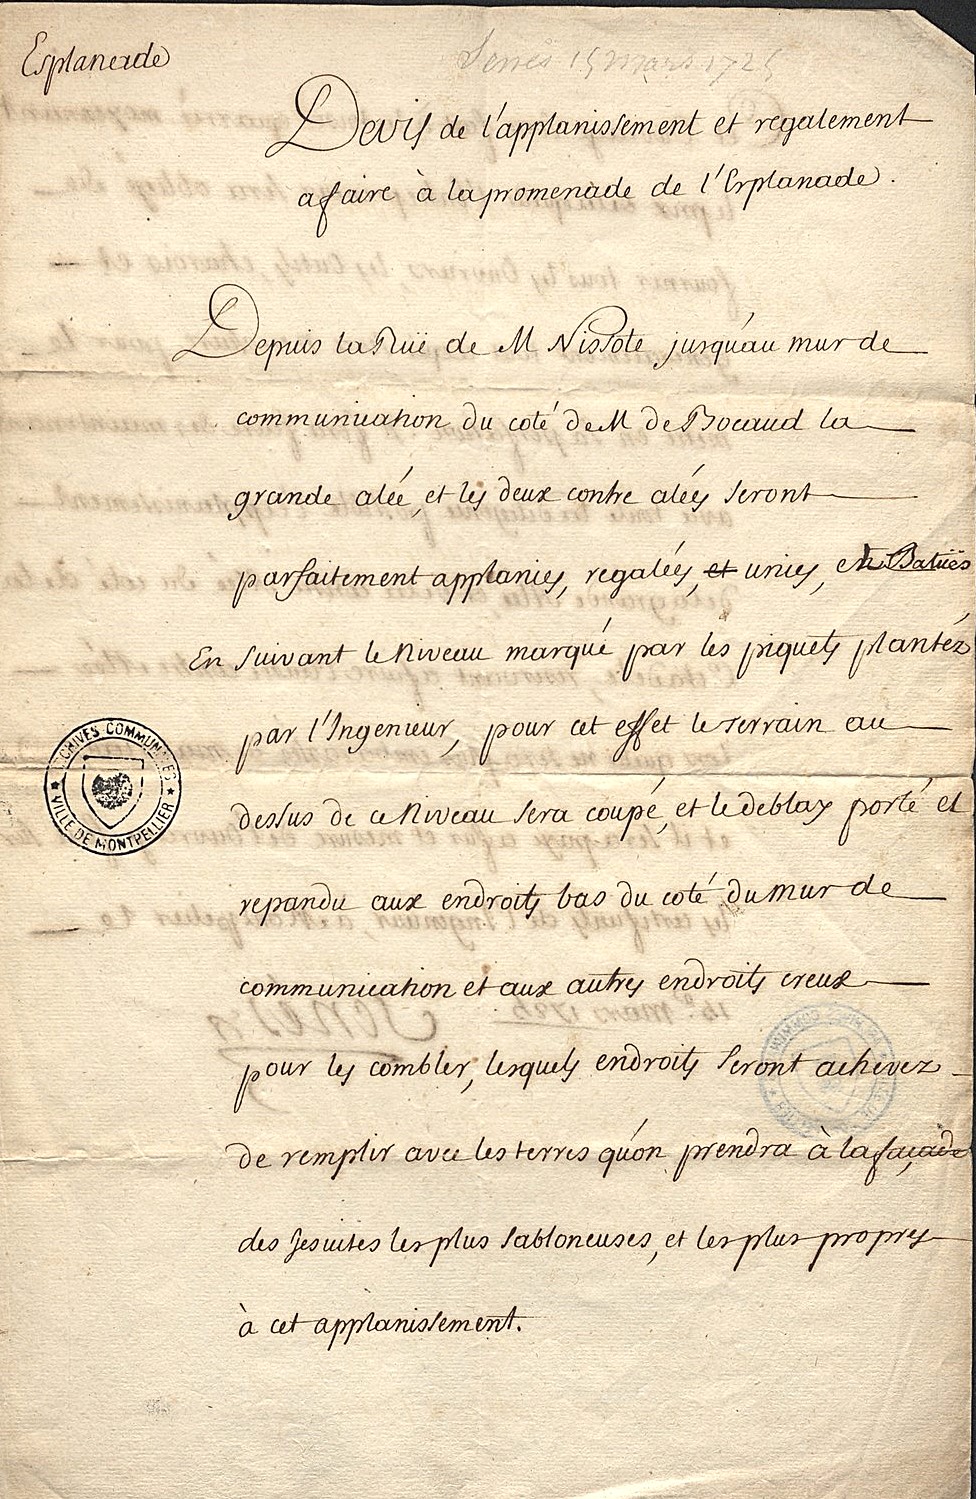 Esplanade
Senés 15 mars 1725
Devis de l'applanissement et regalement
afaire à la promenade de l'Esplanade.
Depuis la Ruë de M Nissole jusqu'au mur de
communication du coté de M de Bocaud la
grande alée, et les deux contre alées seront
parfaitement applanies, regalées, et unies, et Batües
En suivant le Niveau marqué par les piquets plantéz
par l'Ingenieur, pour cet effet le terrain au
dessus de ce Niveau sera coupé, et le deblay porté et
repandu aux endroits bas du coté du mur de
communication et aux autres endroits creux
pour les combler, lesquels endroits seront achevez
de remplir avec les terres qu'on prendra à la façade
des Jesuites les plus sabloneuses, et les plus propres
à cet applanissement.
ARCHIVES COMMUNALES
VILLE DE MONTPELLIER